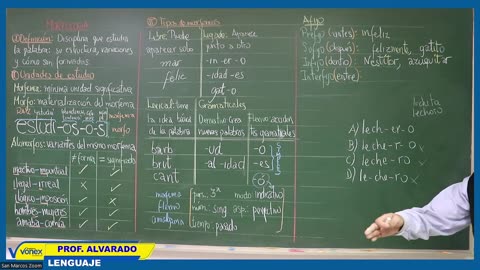 MORFOLOGÍA
Definición: Disciplina que estudia
la palabra: su estructura, variaciones
y cómo son formados.
Unidades de estudio
Morfema: mínima unidad significativa
Morfo: materialización del morfema
estudi-os-o-s
morfema
morfo
Alomorfos: variantes del mismo morfema
≠ forma = significado
inactivo-irrespirital
ilegal-irreal
ilógico-imposición
hombres-mujeres
amaba-comía
Tipos de morfemas
Libre: Puede
aparecer solo
mar
feliz
Ligado: Aparece
junto a otro
-in-er-o
-idad-es
gat-o
Lexical: tiene
la idea básica
de la palabra
barb
brut
cant
Gramaticales
Derivativo: Crea
nuevas palabras
-ud
-al-idad
Flexivo: accidentes gramaticales
-o
-es
-ó
morfema
flexivo
amalgama
pers. 3ª
modo indicativo
núm. sing.
asp. perfectivo
tiempo pasado
Afijo
Prefijo (antes): infeliz
Sufijo (después): felizmente, gatito
Infijo (dentro): Nestitor, azuquitar
Interfijo (entre):
lechero
A) lech-er-O
B) leche-r-O
C) leche-ro
D) le-che-ro
Vonex
PROF. ALVARADO
LENGUAJE
San Marcos Zoom